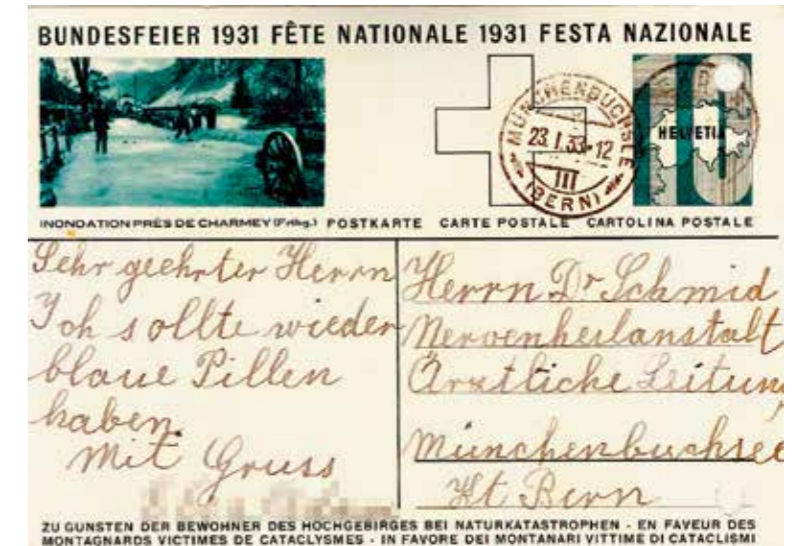 BUNDESFEIER 1931 FÊTE NATIONALE 1931 FESTA NAZIONALE
MÜNCHENBUCHSEE
23.I.33-12
III
(BERN)
HELVETIA
10
INONDATION PRÈS DE CHARMEY (Fribg.) POSTKARTE CARTE POSTALE CARTOLINA POSTALE
Sehr geehrter Herrn
Ich sollte wieder
blaue Pillen
haben.
Mit Gruss
Herrn Dr Schmid
Nervenheilanstalt
Ärztliche Leitung
Münchenbuchsee
Kt Bern
ZU GUNSTEN DER BEWOHNER DES HOCHGEBIRGES BEI NATURKATASTROPHEN - EN FAVEUR DES
MONTAGNARDS VICTIMES DE CATACLYSMES - IN FAVORE DEI MONTANARI VITTIME DI CATACLISMI